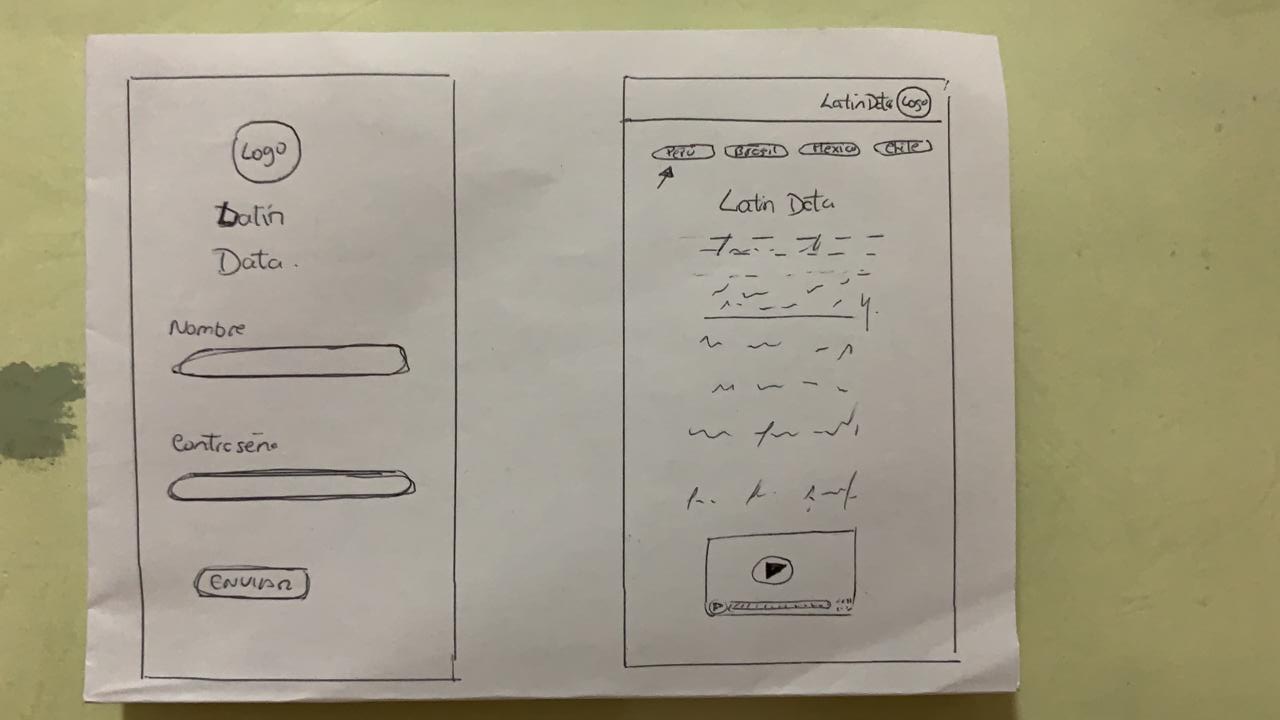 Logo
Latin
Data.
Nombre
Contraseña
ENVIAR
Latin Data Logo
Perú Brasil Mexico Chile
Latin Data